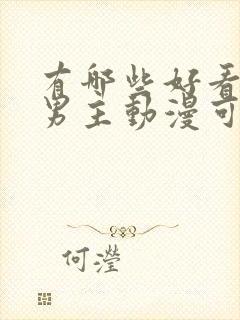 有哪些好看
男主動漫可
何瀅